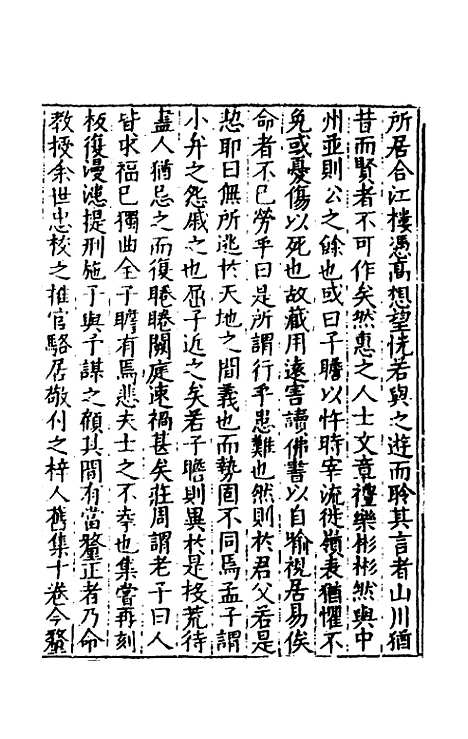 所居合江樓憑高想望恍若與之遊而聆其言者山川猶
昔而賢者不可作矣然惠之人士文章禮樂彬彬然與中
州並則公之餘也或曰子瞻以忤時宰流徙嶺表猶懼不
免或憂傷以死也故藏用遠害讀佛書以自喻視居易俟
命者不已勞乎曰是所謂行乎患難也然則於君父若是
恝耶曰無所逃於天地之間義也而勢固不同焉孟子謂
小弁之怨戚之也屈子近之矣若子瞻則異於是校荒待
盡人猶忌之而復睠睠闕庭速禍甚矣莊周謂老子曰人
皆求福已獨曲全子瞻有焉悲夫士之不幸也集嘗再刻
板復漫漶提刑施子與予謀之顧其間有當釐正者乃命
教授余世忠校之推官駱居敬付之梓人舊集十卷今釐